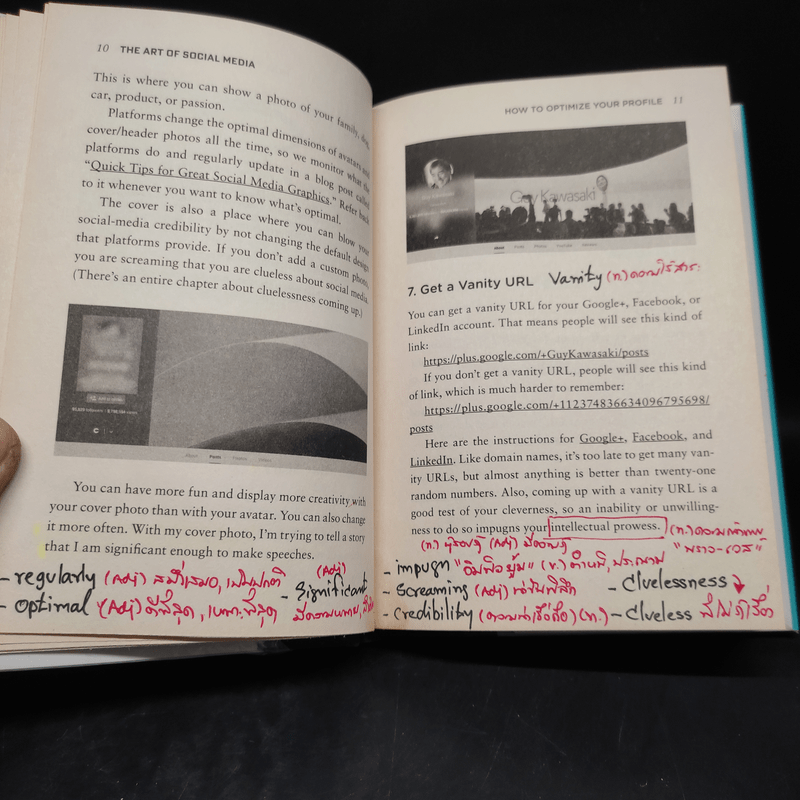 10 THE ART OF SOCIAL MEDIA
This is where you can show a photo of your family, dog,
car, product, or passion.
Platforms change the optimal dimensions of avatars and
cover/header photos all the time, so we monitor what the
platforms do and regularly update in a blog post called
“Quick Tips for Great Social Media Graphics.” Refer back
to it whenever you want to know what’s optimal.
The cover is also a place where you can blow your
social-media credibility by not changing the default design
that platforms provide. If you don’t add a custom photo,
you are screaming that you are clueless about social media.
(There’s an entire chapter about cluelessness coming up.)
You can have more fun and display more creativity with
your cover photo than with your avatar. You can also change
it more often. With my cover photo, I’m trying to tell a story
that I am significant enough to make speeches.
- regularly (Adj) สม่ำเสมอ, เป็นปกติ
- optimal (Adj) ดีที่สุด, เหมาะที่สุด
(Adj)
- Significant
มีความหมาย,
HOW TO OPTIMIZE YOUR PROFILE 11
Guy Kawasaki
7. Get a Vanity URL Vanity (n.) ความไร้สาระ
You can get a vanity URL for your Google+, Facebook, or
LinkedIn account. That means people will see this kind of
link:
https://plus.google.com/+GuyKawasaki/posts
If you don’t get a vanity URL, people will see this kind
of link, which is much harder to remember:
https://plus.google.com/+112374836634096795698/
posts
Here are the instructions for Google+, Facebook, and
LinkedIn. Like domain names, it’s too late to get many van-
ity URLs, but almost anything is better than twenty-one
random numbers. Also, coming up with a vanity URL is a
good test of your cleverness, so an inability or unwilling-
ness to do so impugns your intellectual prowess. (n.)
(n.) (Adj) "พราว-เวส"
- impugn "อิมพิวยูน" (v.) ตำหนิ, ประณาม
- Screaming (Adj) - Cluelessness
- Credibility (ความน่าเชื่อถือ) (n.) - Clueless ที่ไม่รู้เรื่อง